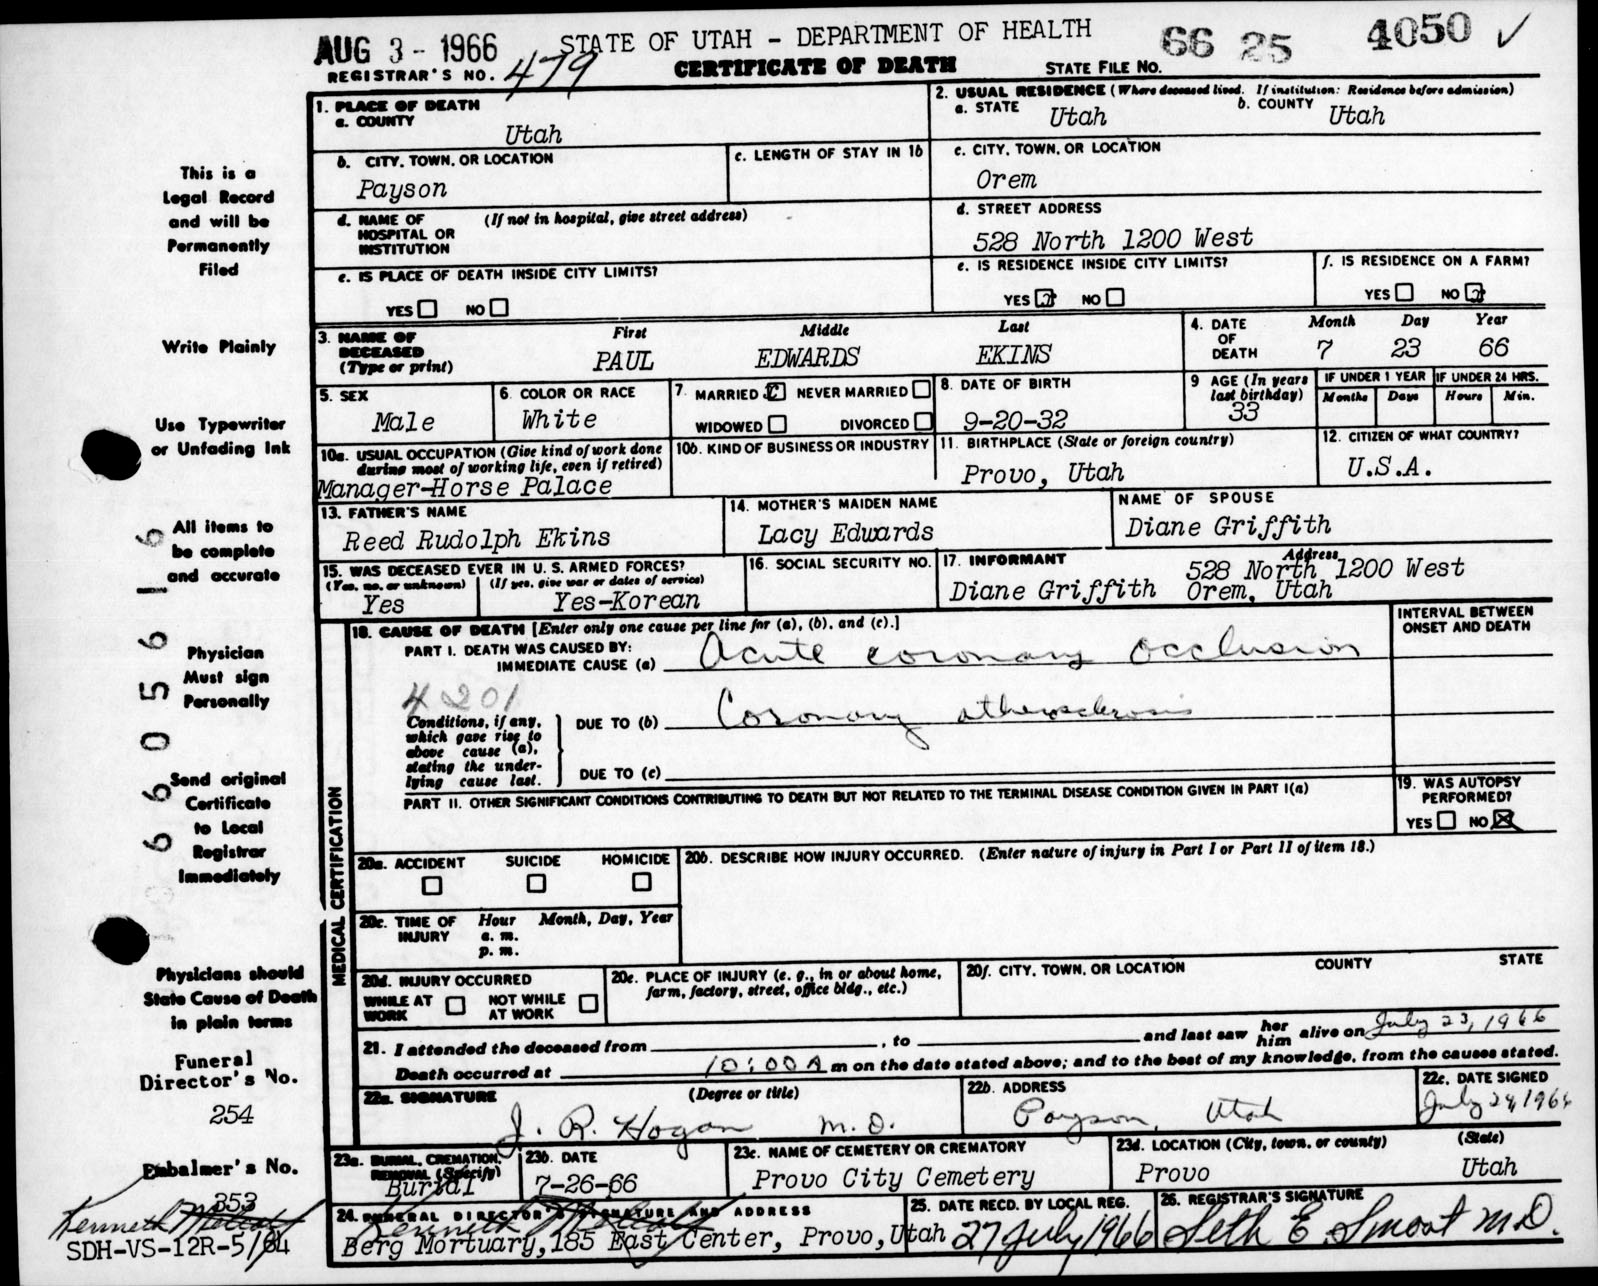 AUG 3 - 1966 STATE OF UTAH - DEPARTMENT OF HEALTH 66 25 4050 ✓
REGISTRAR'S NO. 479 CERTIFICATE OF DEATH STATE FILE NO.
1. PLACE OF DEATH
a. COUNTY
Utah
2. USUAL RESIDENCE (Where deceased lived. If institution: Residence before admission)
a. STATE Utah b. COUNTY Utah
b. CITY, TOWN, OR LOCATION
Payson
c. LENGTH OF STAY IN 1b
c. CITY, TOWN, OR LOCATION
Orem
d. NAME OF HOSPITAL OR INSTITUTION (If not in hospital, give street address)
d. STREET ADDRESS
528 North 1200 West
e. IS PLACE OF DEATH INSIDE CITY LIMITS?
YES NO
e. IS RESIDENCE INSIDE CITY LIMITS?
YES x NO
f. IS RESIDENCE ON A FARM?
YES NO x
3. NAME OF DECEASED (Type or print)
First Middle Last
PAUL EDWARDS EKINS
4. DATE OF DEATH
Month Day Year
7 23 66
5. SEX
Male
6. COLOR OR RACE
White
7. MARRIED x NEVER MARRIED
WIDOWED DIVORCED
8. DATE OF BIRTH
9-20-32
9 AGE (In years last birthday)
33
IF UNDER 1 YEAR IF UNDER 24 HRS.
Months Days Hours Min.
10a. USUAL OCCUPATION (Give kind of work done
during most of working life, even if retired)
Manager-Horse Palace
10b. KIND OF BUSINESS OR INDUSTRY
11. BIRTHPLACE (State or foreign country)
Provo, Utah
12. CITIZEN OF WHAT COUNTRY?
U.S.A.
13. FATHER'S NAME
Reed Rudolph Ekins
14. MOTHER'S MAIDEN NAME
Lacy Edwards
NAME OF SPOUSE
Diane Griffith
15. WAS DECEASED EVER IN U. S. ARMED FORCES?
(Yes, no. or unknown) (If yes, give war or dates of service)
Yes Yes-Korean
16. SOCIAL SECURITY NO.
17. INFORMANT Address
528 North 1200 West
Diane Griffith Orem, Utah
18. CAUSE OF DEATH [Enter only one cause per line for (a), (b), and (c).]
INTERVAL BETWEEN
ONSET AND DEATH
PART I. DEATH WAS CAUSED BY:
IMMEDIATE CAUSE (a) Acute coronary occlusion
4201
Conditions, if any,
which gave rise to
above cause (a),
stating the under-
lying cause last.
DUE TO (b) Coronary atherosclerosis
DUE TO (c)
PART II. OTHER SIGNIFICANT CONDITIONS CONTRIBUTING TO DEATH BUT NOT RELATED TO THE TERMINAL DISEASE CONDITION GIVEN IN PART I(a)
19. WAS AUTOPSY
PERFORMED?
YES NO X
MEDICAL CERTIFICATION
20a. ACCIDENT SUICIDE HOMICIDE
20b. DESCRIBE HOW INJURY OCCURRED. (Enter nature of injury in Part I or Part II of item 18.)
20c. TIME OF INJURY Hour Month, Day, Year
a. m.
p. m.
20d. INJURY OCCURRED
WHILE AT WORK NOT WHILE AT WORK
20e. PLACE OF INJURY (e. g., in or about home,
farm, factory, street, office bldg., etc.)
20f. CITY, TOWN, OR LOCATION COUNTY STATE
21. I attended the deceased from , to and last saw her him alive on July 23, 1966
Death occurred at 10:00 A m on the date stated above; and to the best of my knowledge, from the causes stated.
22a. SIGNATURE (Degree or title)
J. R. Hogan M.D.
22b. ADDRESS
Payson, Utah
22c. DATE SIGNED
July 24, 1966
23a. BURIAL, CREMATION,
REMOVAL (Specify)
Burial
23b. DATE
7-26-66
23c. NAME OF CEMETERY OR CREMATORY
Provo City Cemetery
23d. LOCATION (City, town, or county) (State)
Provo Utah
24. FUNERAL DIRECTOR'S SIGNATURE AND ADDRESS
Berg Mortuary, 185 East Center, Provo, Utah
25. DATE RECD. BY LOCAL REG.
27 July 1966
26. REGISTRAR'S SIGNATURE
Seth E. Smoot M.D.
This is a
Legal Record
and will be
Permanently
Filed
Write Plainly
Use Typewriter
or Unfading Ink
All items to
be complete
and accurate
Physician
Must sign
Personally
Send original
Certificate
to Local
Registrar
Immediately
Physicians should
State Cause of Death
in plain terms
Funeral
Director's No.
254
Embalmer's No.
353
Kenneth
SDH-VS-12R-5/64